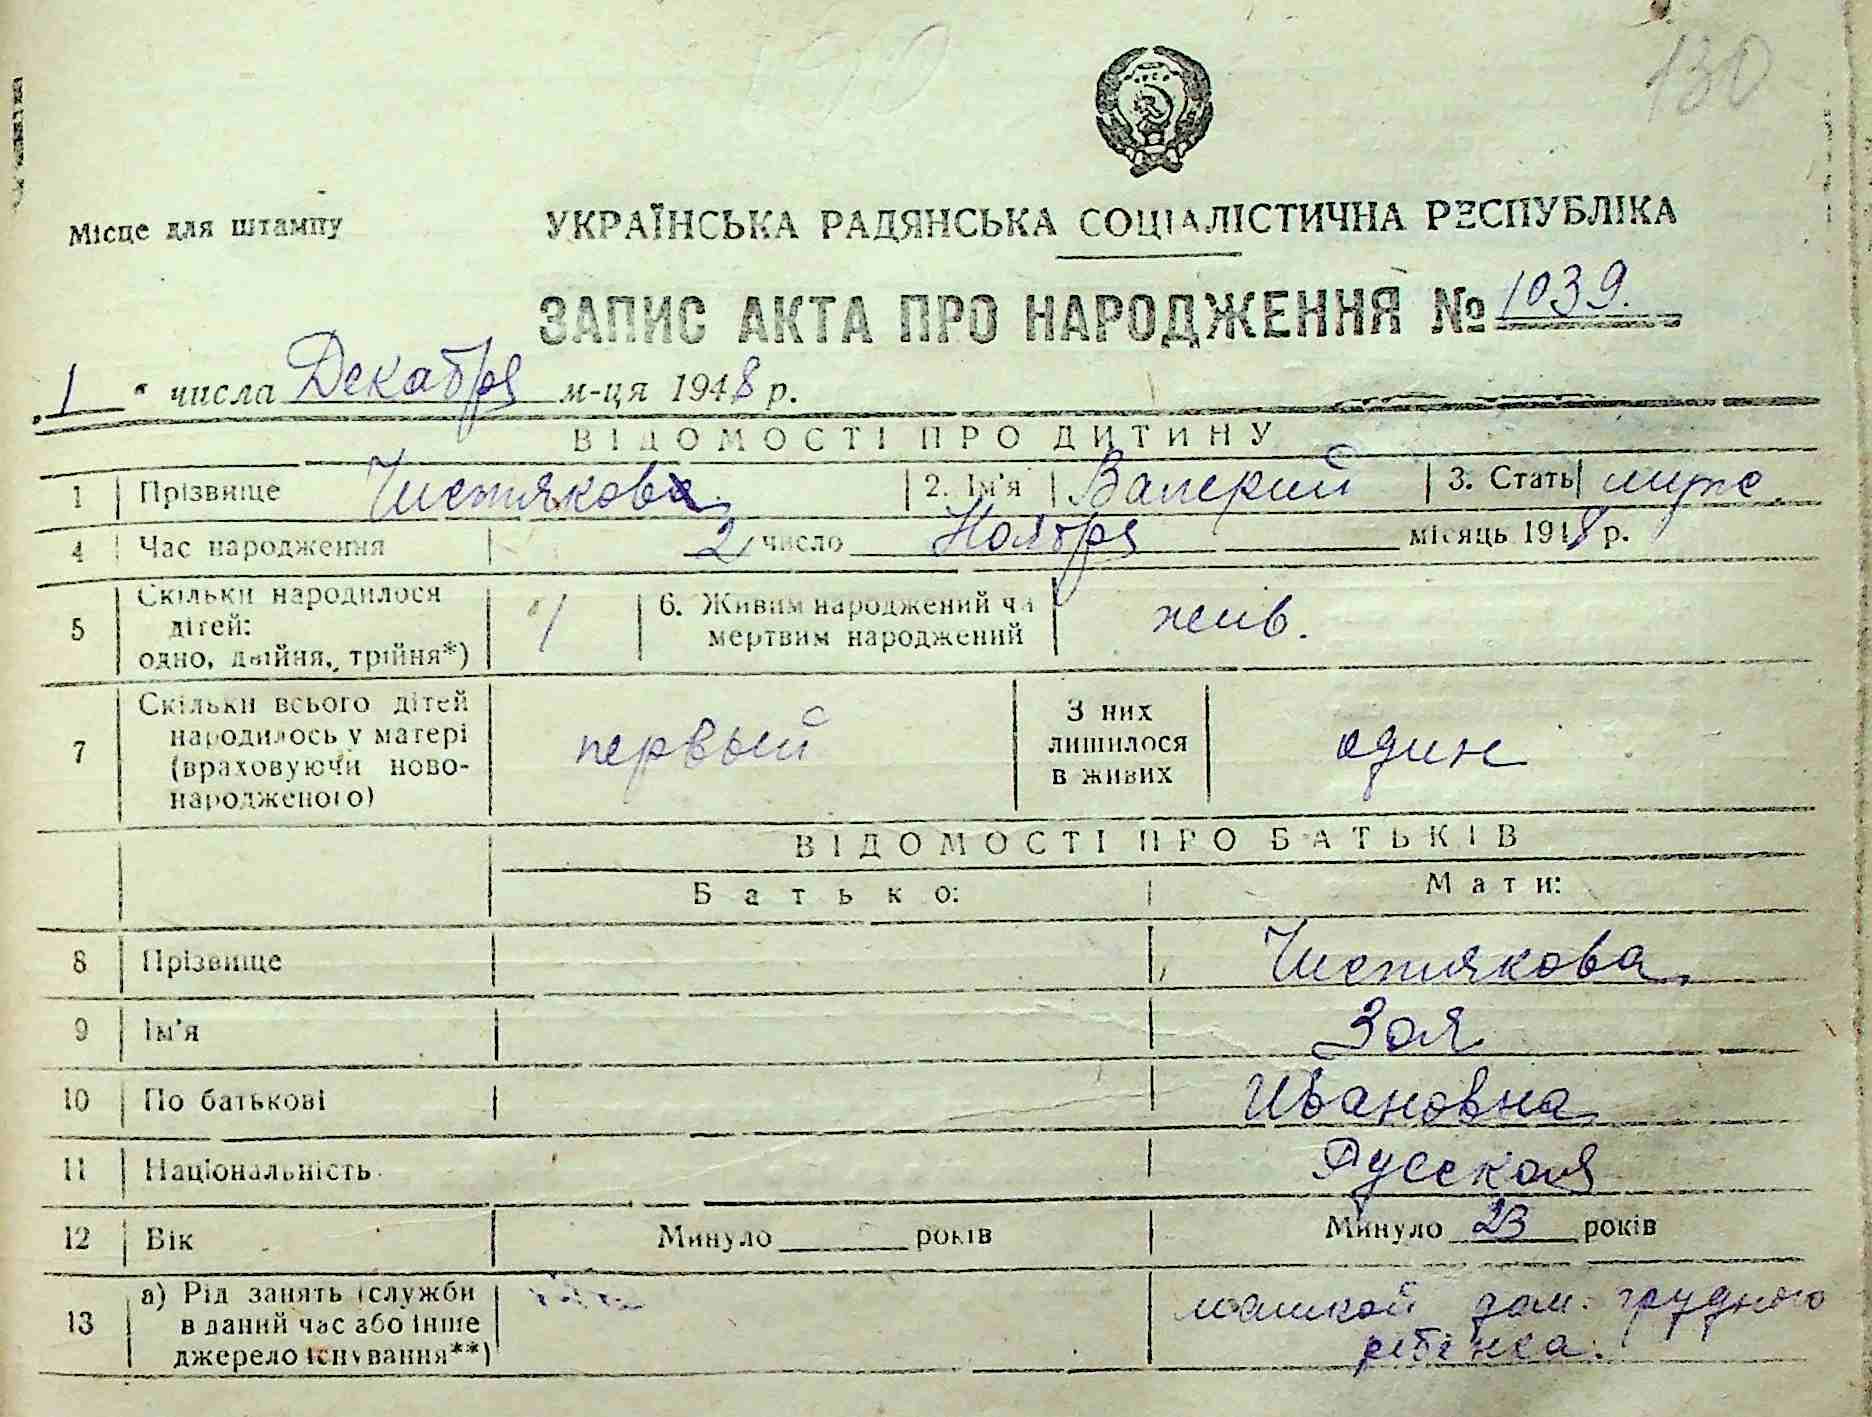 130
Місце для штампу
УКРАЇНСЬКА РАДЯНСЬКА СОЦІАЛІСТИЧНА РЕСПУБЛІКА
ЗАПИС АКТА ПРО НАРОДЖЕННЯ № 1039.
„ 1 “ числа Декабря м-ця 1948 р.
ВІДОМОСТІ ПРО ДИТИНУ
1 Прізвище Чистяков 2. Ім'я Валерий 3. Стать муже
4 Час народження 2 число Ноября місяць 1948 р.
5 Скільки народилося дітей: одно, двійня, трійня*) 1 6. Живим народжений чи мертвим народжений жив.
7 Скільки всього дітей народилось у матері (враховуючи новонародженого) первый З них лишилося в живих один
ВІДОМОСТІ ПРО БАТЬКІВ
Батько: Мати:
8 Прізвище Чистякова
9 Ім'я Зоя
10 По батькові Ивановна
11 Національність Русская
12 Вік Минуло ____ років Минуло 23 років
13 а) Рід занять (служби в даний час або інше джерело існування**) дом. грудного ребенка.